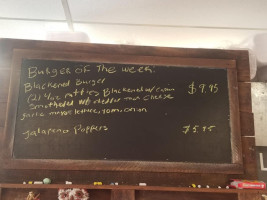 Burger of The week:
Blackened Burger
(2) 4oz patties Blackened w/ cajun $9.95
smothered w/ cheddar mac cheese
garlic mayo, lettuce, tom, onion
Jalapeno Poppers $5.95